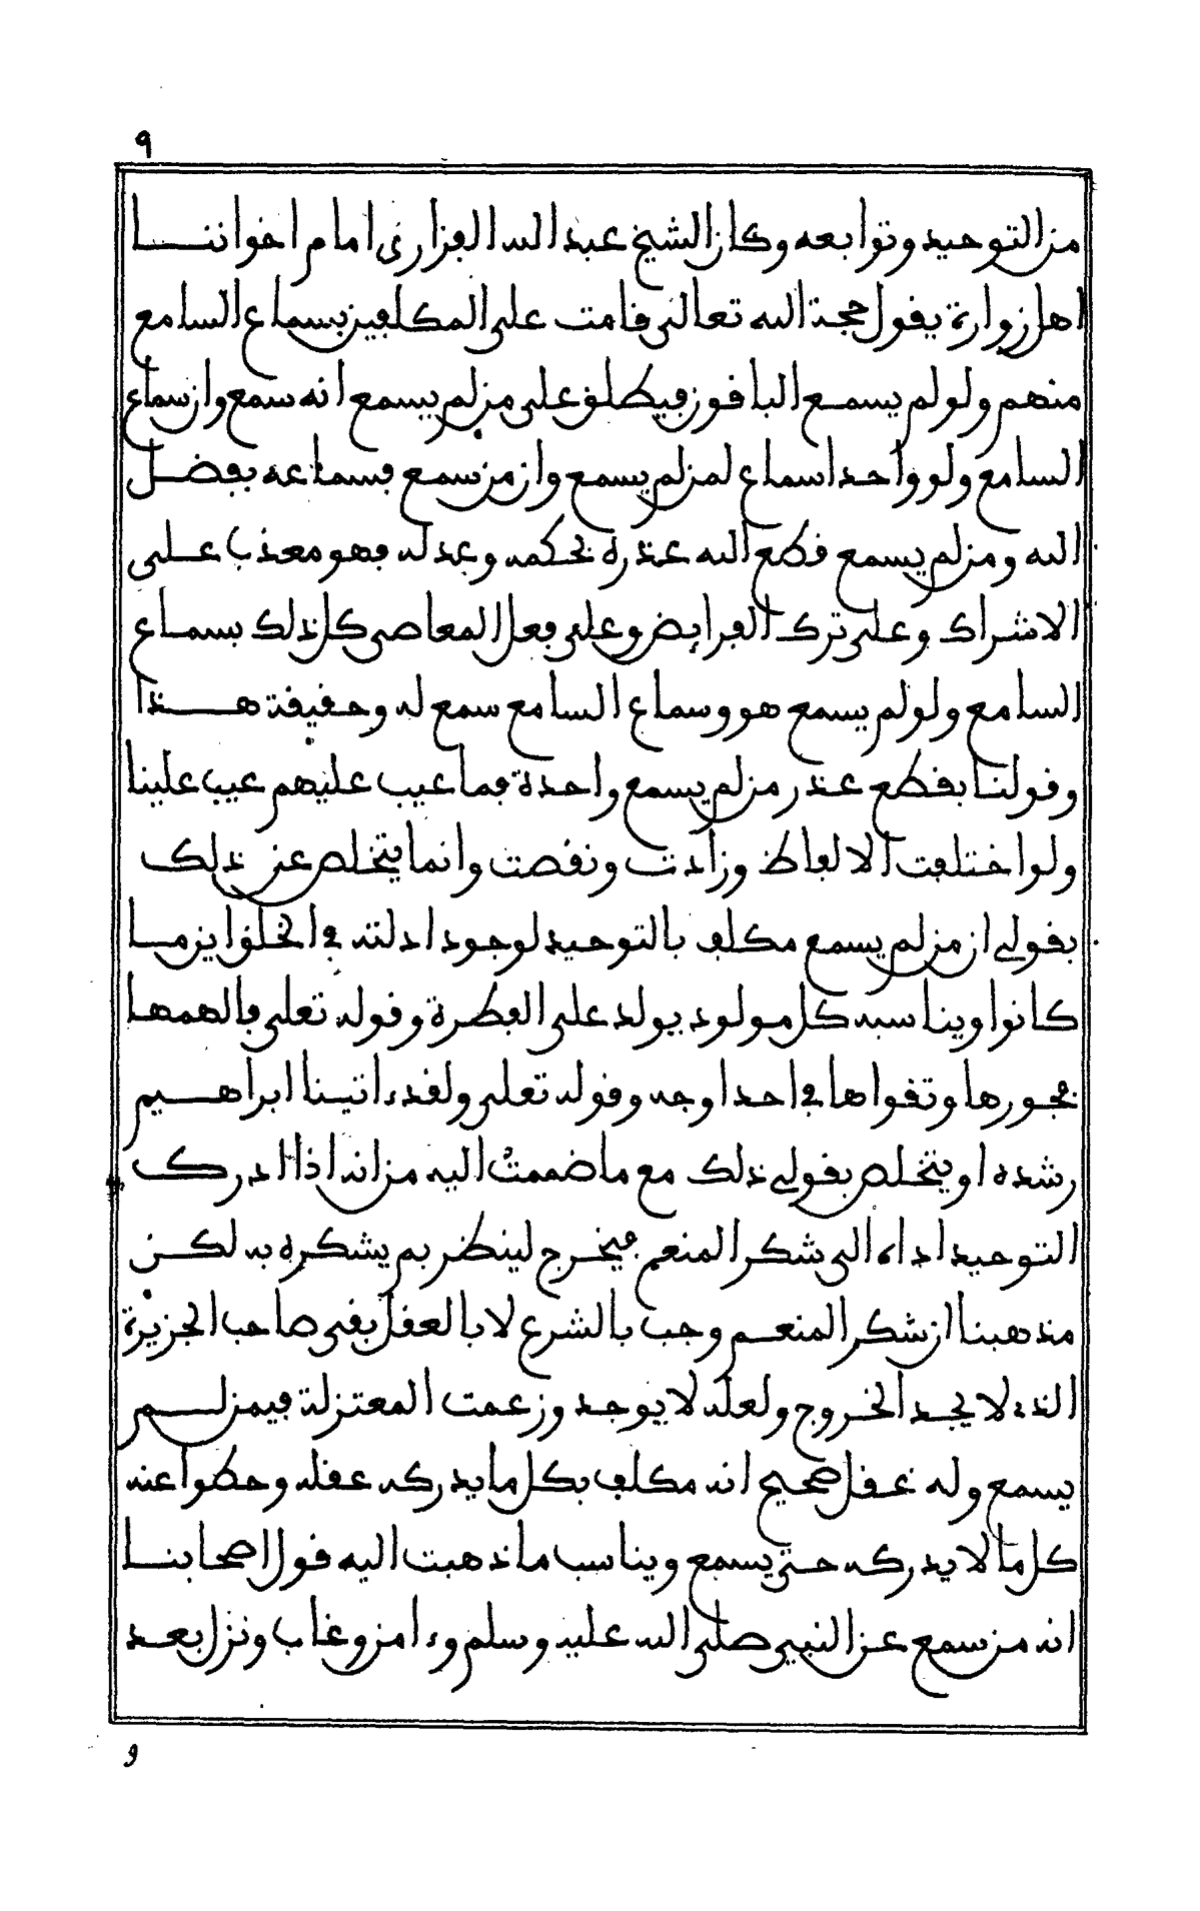 ٩
من التوحيد وتوابعه وكان الشيخ عبد الله الفزاري امام اخواننا
اهل زوارة يقول حجة الله تعالى قامت على المكلفين بسماع السامع
منهم ولو لم يسمع الباقون فيطلق على من لم يسمع انه سمع وان سماع
السامع ولو واحدا سماع لمن لم يسمع وان من سمع فسماعه بفضل
الله ومن لم يسمع قطع الله عذره بحكمه وعدله فهو معذب على
الاشراك وعلى ترك الفرايض وعلى فعل المعاصي كل ذلك بسماع
السامع ولو لم يسمع هو وسماع السامع سمع له وحقيقة هذا
وقولنا بقطع عذر من لم يسمع واحدة فما عيب عليهم عيب علينا
ولو اختلفت الالفاظ وزادت ونقصت وانما يتخلص عن ذلك
بقولي ان من لم يسمع مكلف بالتوحيد لوجود ادلته في الخلق اين ما
كانوا ويناسبه كل مولود يولد على الفطرة وقوله تعلى فالهمها
فجورها وتقواها في احد اوجه وقوله تعلى ولقد ءاتينا ابراهيم
رشده او يتخلص بقولي ذلك مع ما ضممت اليه من انه اذا ادرك
التوحيد اداه الى شكر المنعم فيخرج لينظر بم يشكره به لكن
مذهبنا ان شكر المنعم وجب بالشرع لا بالعقل بقى صاحب الجزيرة
الذى لا يجد الخروج ولعله لا يوجد وزعمت المعتزلة فيمن لم
يسمع وله عقل صحيح انه مكلف بكل ما يدركه عقله وحطوا عنه
كل ما لا يدركه حتى يسمع ويناسب ما ذهبت اليه قول اصحابنا
انه من سمع عن النبي صلى الله عليه وسلم وءامن وغاب ونزل بعد
و